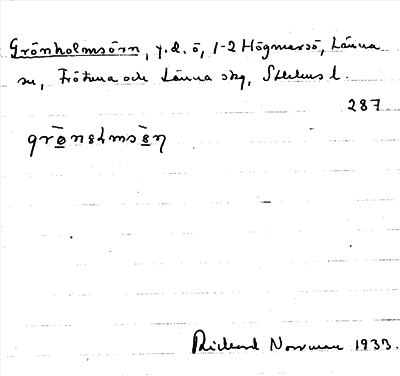 Grönholmsörn, y.d. ö, 1-2 Högmarsö, Länna
sn, Frötuna och Länna skg, Sthlms l.
287
grønshmsøn
Rickard Norman 1933.